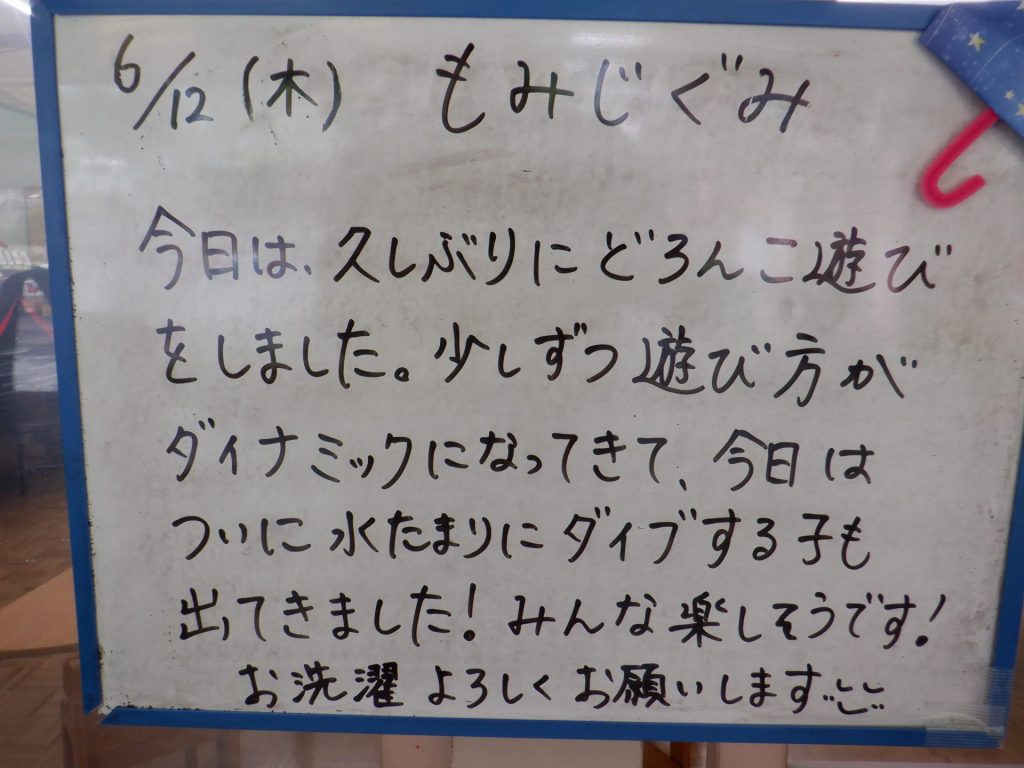 6/12(木) もみじぐみ
今日は、久しぶりにどろんこ遊び
をしました。少しずつ遊び方が
ダイナミックになってきて、今日は
ついに水たまりにダイブする子も
出てきました!みんな楽しそうです!
お洗濯よろしくお願いします